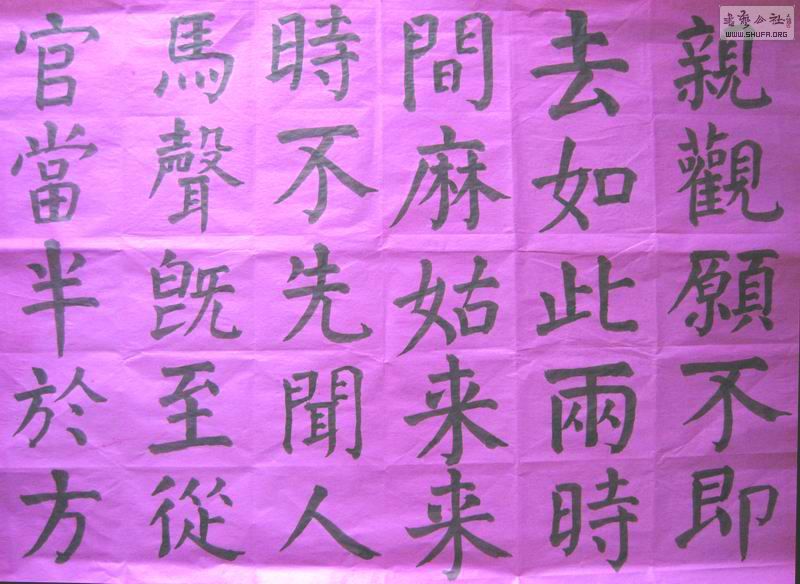 親觀願不即
去如此兩時
間麻姑来来
時不先聞人
馬聲既至從
官當半於方
书艺公社
WWW.SHUFA.ORG